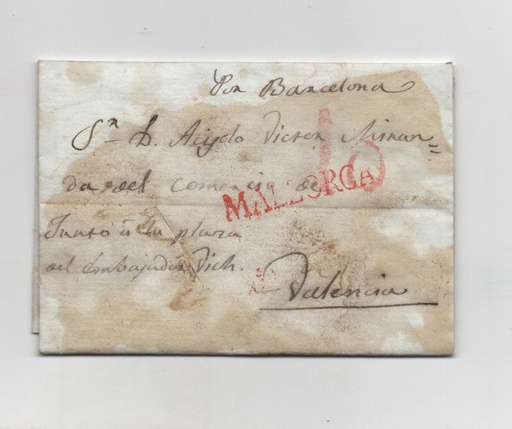 Por Barcelona
Sr. D. Acisclo Victor Miran=
da del comercio de
MALLORCA
Junto à la plaza
del Embajador Vich.
Valencia